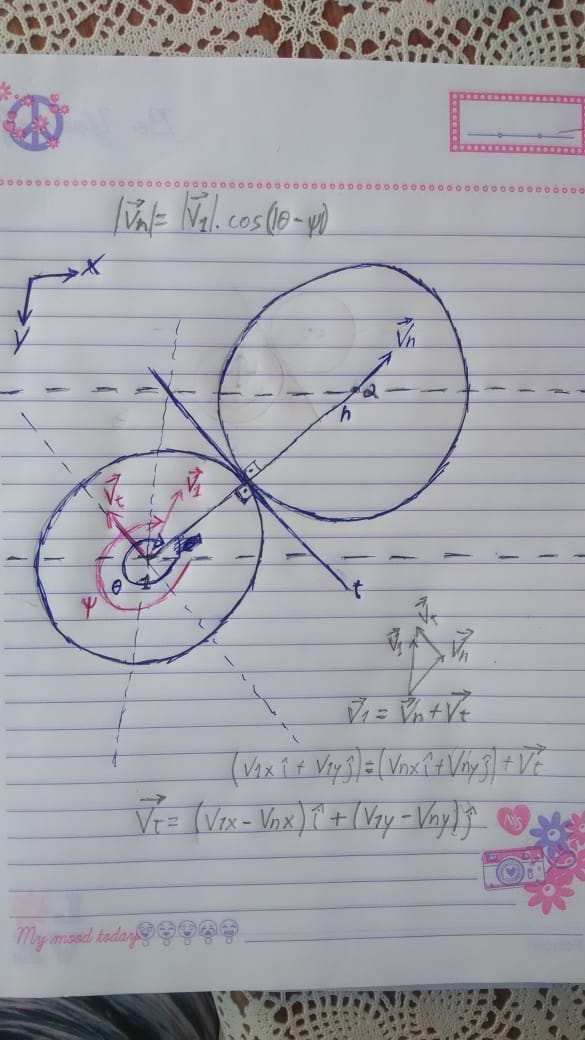 |V⃗n| = |V⃗1|. cos(|θ - ψ|)
x
y
V⃗n
2
n
V⃗t
V⃗1
θ
1
ψ
t
V⃗t
V⃗1
V⃗n
V⃗1 = V⃗n + V⃗t
(V1x î + V1y ĵ) = (Vnx î + Vny ĵ) + V⃗t
V⃗t = (V1x - Vnx) î + (V1y - Vny) ĵ
My mood today